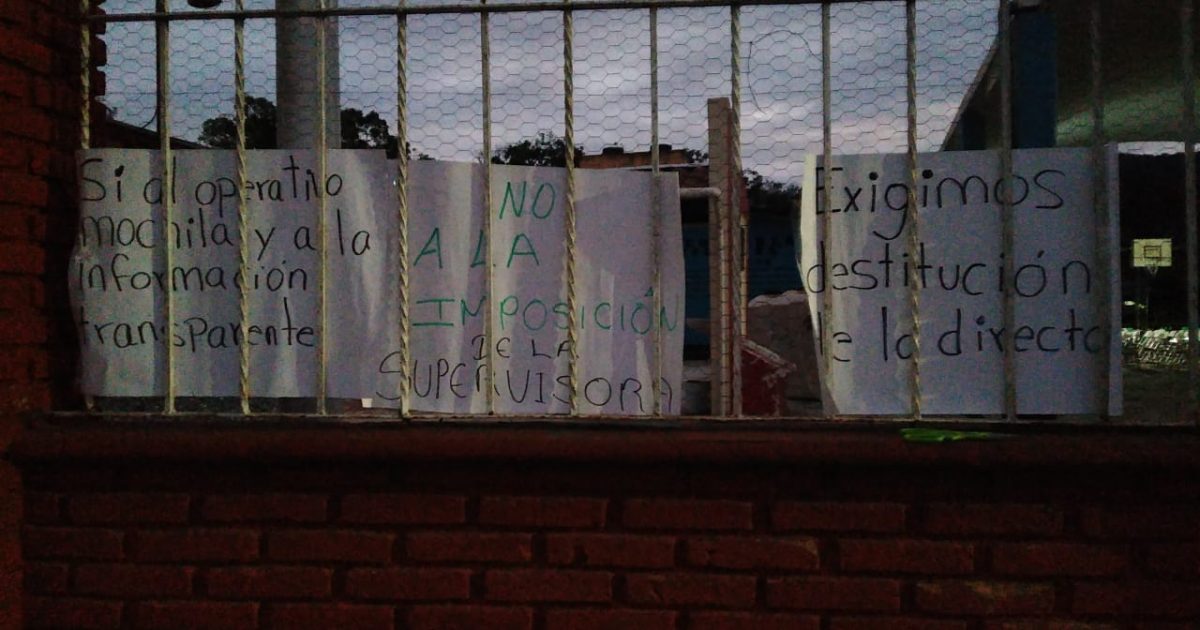 Si al operativo
mochila y a la
información
transparente
NO
A LA
IMPOSICIÓN
DE LA
SUPERVISORA
Exigimos
destitución
de la directo